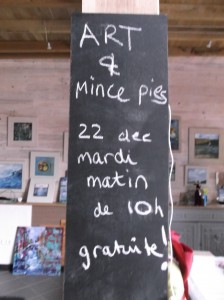 ART
&
Mince pies
22 dec
mardi
matin
de 10h
gratuite!